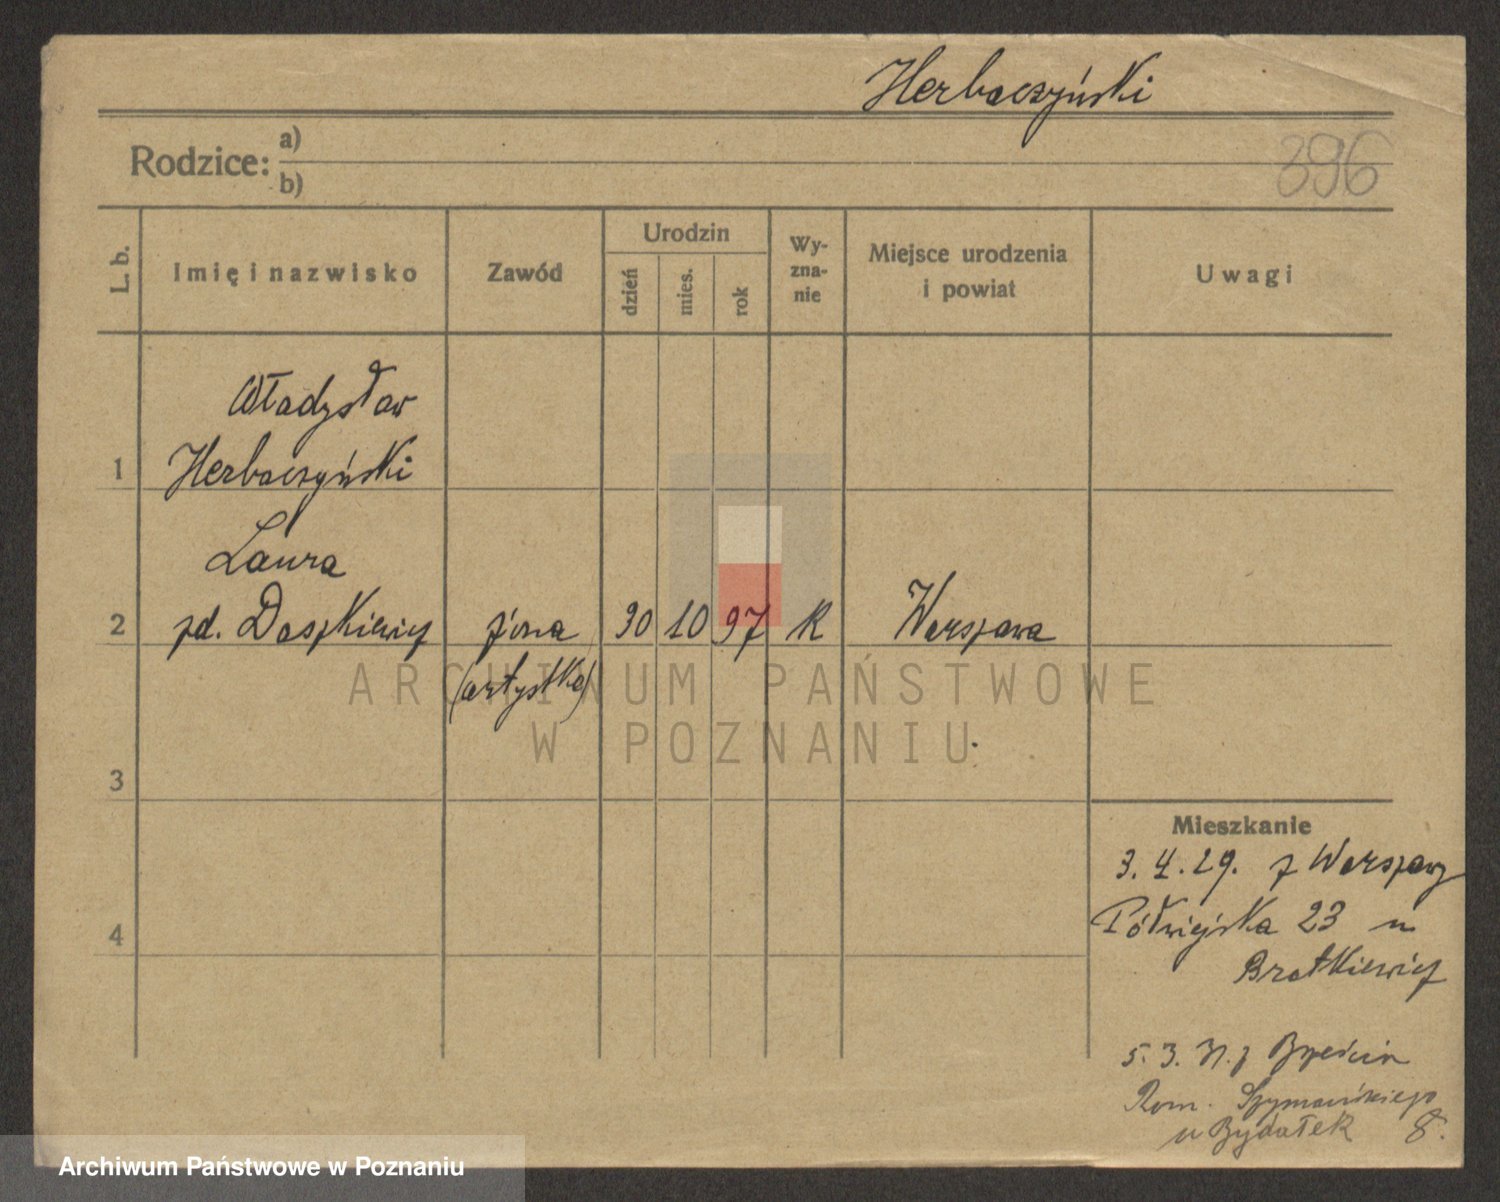 Herbaczyński
Rodzice: a)
b)
396
L. b.
Imię i nazwisko
Zawód
Urodzin
dzień
mies.
rok
Wy-
zna-
nie
Miejsce urodzenia
i powiat
Uwagi
Władysław
1 Herbaczyński
Laura
2 zd. Daszkiewicz żona 30 10 97 K Warszawa
(artystka)
ARCHIWUM PAŃSTWOWE
W POZNANIU
3
Mieszkanie
3. 4. 29. z Warszawy
4
Półwiejska 23 u
Bratkiewicz
5. 3. 31. z Brześcia
Rom. Szymańskiego
u Bydałek 8.
Archiwum Państwowe w Poznaniu